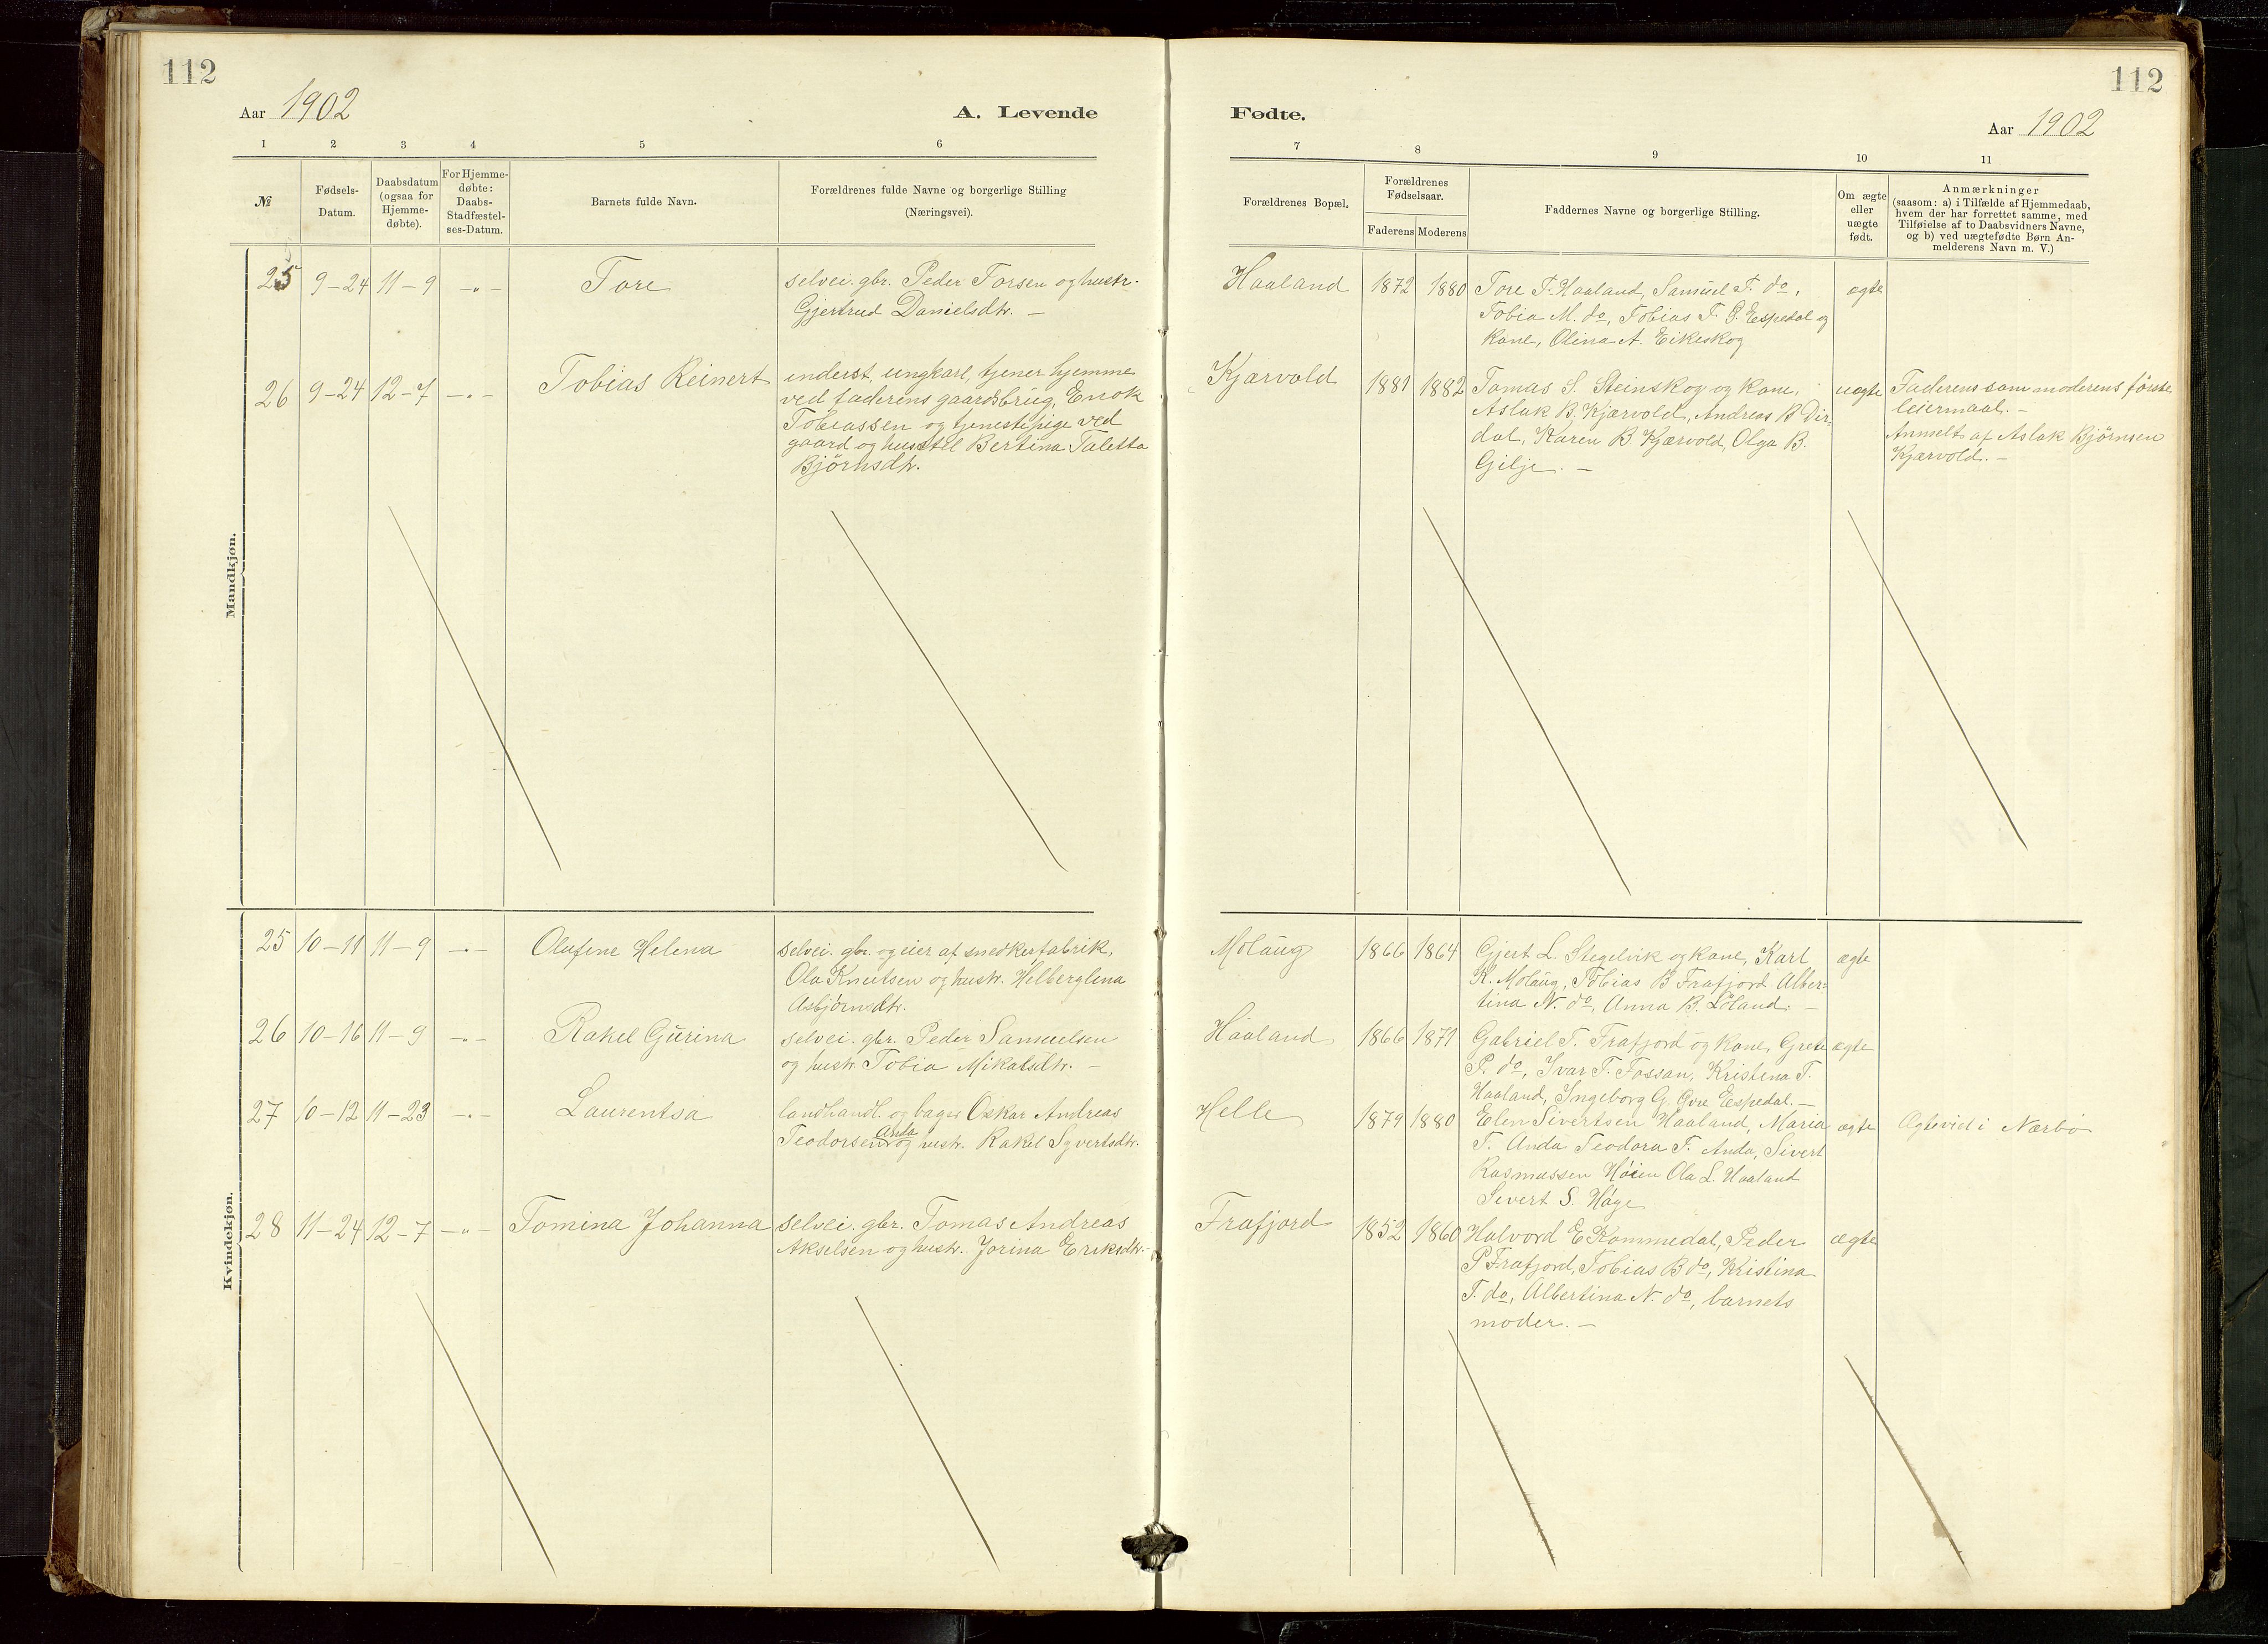 112
Aar 1902
A. Levende
1 2 3 4 5 6
№
Fødsels-
Datum.
Daabsdatum
(ogsaa for
Hjemme-
døbte).
For Hjemme-
døbte:
Daabs-
Stadfæstel-
ses-Datum.
Barnets fulde Navn.
Forældrenes fulde Navne og borgerlige Stilling
(Næringsvei).
Mandkjøn.
25 9-24 11-9 -"- Tore
selvei. gbr. Peder Torsen og hustr.
Gjertrud Danielsdtr. -
26 9-24 12-7 -"- Tobias Reinert
inderst, ungkarl, tjener hjemme
ved faderens gaardsbrug, Enok
Tobiassen og tjenestepige ved
gaard og husstel Bertina Taletta
Björnsdtr.
Kvindekjøn.
25 10-11 11-9 -"- Olufine Helena
selvei. gbr. og eier af snedkerfabrik,
Ola Knutsen og hustr. Helberglena
Asbjørnsdtr.
26 10-16 11-9 -"- Rakel Gurina
selvei. gbr. Peder Samuelsen
og hustr. Tobia Mikalsdtr. -
27 10-12 11-23 -"- Laurentsa
landhandl. og bager Oskar Andreas
Teodorsen Anda og hustr. Rakel Syvertsdtr.
28 11-24 12-7 -"- Tomina Johanna
selvei. gbr. Tomas Andreas
Akselsen og hustr. Jorina Eriksdtr.-
112
Fødte.
Aar 1902
7 8 9 10 11
Forældrenes Bopæl.
Forældrenes
Fødselsaar.
Faderens Moderens
Faddernes Navne og borgerlige Stilling.
Om ægte
eller
uægte
født.
Anmærkninger
(saasom: a) i Tilfælde af Hjemmedaab,
hvem der har forrettet samme, med
Tilføielse af to Daabsvidners Navne,
og b) ved uægtefødte Børn An-
melderens Navn m. V.)
Haaland 1872 1880 Tore T. Haaland, Samuel T. do, ægte
Tobia M. do, Tobias T. G. Espedal og
kone, Olina A. Eikeskog
Kjærvold 1881 1882 Tomas S. Steinskog og kone, uægte Faderens som moderens første
Aslak B. Kjærvold, Andreas B Dir-
dal, Karen B Kjærvold, Olga B.
Gilje. -
leiermaal. -
Anmeldt af Aslak Björnsen
Kjærvold. -
Molaug 1866 1864 Gjert L. Stegelvik og kone, Karl ægte
K. Molaug, Tobias B Frafjord Alber-
tina N. do, Anna B. Löland. -
Haaland 1866 1871 Gabriel T. Frafjord og kone, Grete ægte
P. do, Ivar T. Fossan, Kristina T.
Haaland, Ingeborg G. Espedal. -
Helle 1879 1880 Elen Sivertsen Haaland, Maria ægte Ægteviet i Nærbø
T. Anda Teodora T. Anda, Sivert
Rasmussen Höien Ola L. Haaland
Sivert S. Höge
Frafjord 1852 1860 Halvord E Kommedal, Peder ægte
P Frafjord, Tobias B do, Kristina
T. do, Albertina N. do, barnets
moder. -